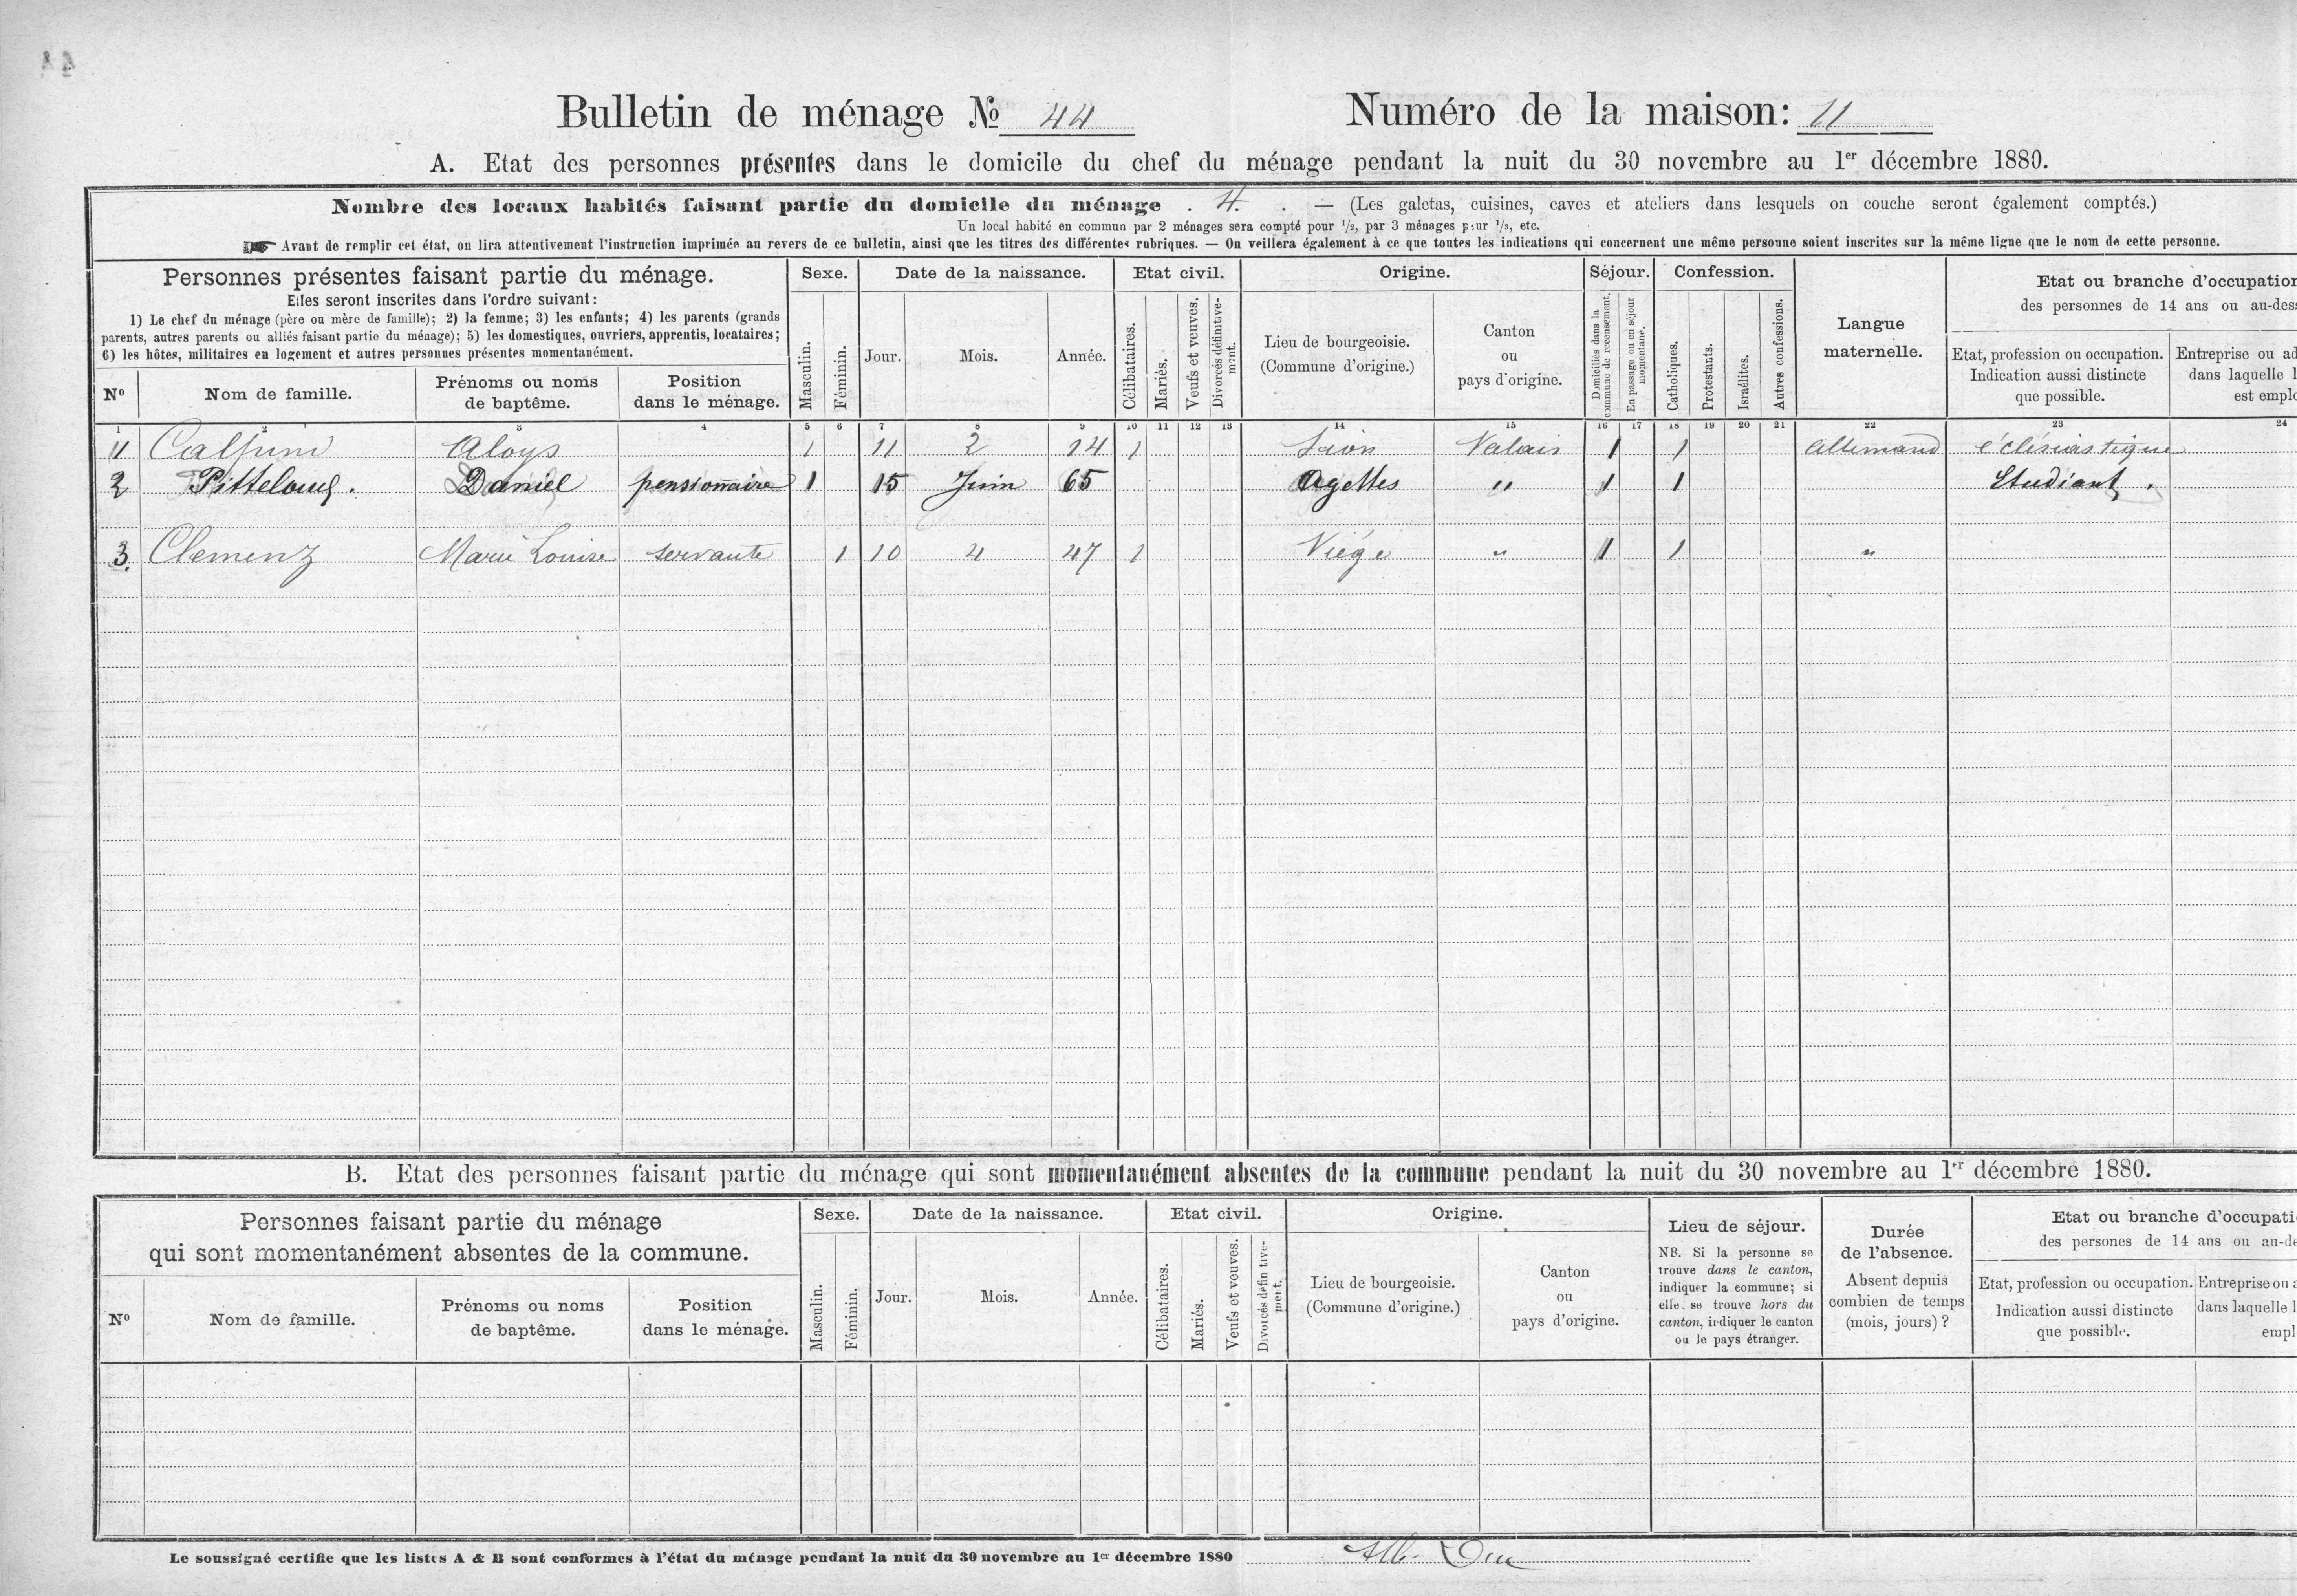 44
Bulletin de ménage № 44 Numéro de la maison: 11
A. Etat des personnes présentes dans le domicile du chef du ménage pendant la nuit du 30 novembre au 1er décembre 1880.
Nombre des locaux habités faisant partie du domicile du ménage . 4. . — (Les galetas, cuisines, caves et ateliers dans lesquels on couche seront également comptés.)
Un local habité en commun par 2 ménages sera compté pour 1/2, par 3 ménages pour 1/3, etc.
Avant de remplir cet état, on lira attentivement l'instruction imprimée au revers de ce bulletin, ainsi que les titres des différentes rubriques. — On veillera également à ce que toutes les indications qui concernent une même personne soient inscrites sur la même ligne que le nom de cette personne.
Personnes présentes faisant partie du ménage.
Elles seront inscrites dans l'ordre suivant:
1) Le chef du ménage (père ou mère de famille); 2) la femme; 3) les enfants; 4) les parents (grands
parents, autres parents ou alliés faisant partie du ménage); 5) les domestiques, ouvriers, apprentis, locataires;
6) les hôtes, militaires en logement et autres personnes présentes momentanément.
Nº Nom de famille. Prénoms ou noms de baptême. Position dans le ménage.
Sexe. Masculin. Féminin.
Date de la naissance. Jour. Mois. Année.
Etat civil. Célibataires. Mariés. Veufs et veuves. Divorcés définitivement.
Origine. Lieu de bourgeoisie. (Commune d'origine.) Canton ou pays d'origine.
Séjour. Domiciliés dans la commune de recensement. En passage ou en séjour momentané.
Confession. Catholiques. Protestants. Israélites. Autres confessions.
Langue maternelle.
Etat ou branche d'occupation
des personnes de 14 ans ou au-des
Etat, profession ou occupation. Indication aussi distincte que possible.
Entreprise ou ad
dans laquelle l
est emplo
1 2 3 4 5 6 7 8 9 10 11 12 13 14 15 16 17 18 19 20 21 22 23 24
1 Calpini Aloys 1 11 2 14 1 Sion Valais 1 1 Allemand éclésiastique
2 Pitteloud. Daniel pensionnaire 1 15 Juin 65 Agettes " 1 1 Etudiant.
3. Clemenz Marie Louise servante 1 10 4 47 1 Viége " 1 1 "
B. Etat des personnes faisant partie du ménage qui sont momentanément absentes de la commune pendant la nuit du 30 novembre au 1er décembre 1880.
Personnes faisant partie du ménage
qui sont momentanément absentes de la commune.
Nº Nom de famille. Prénoms ou noms de baptême. Position dans le ménage.
Sexe. Masculin. Féminin.
Date de la naissance. Jour. Mois. Année.
Etat civil. Célibataires. Mariés. Veufs et veuves. Divorcés définitivement.
Origine. Lieu de bourgeoisie. (Commune d'origine.) Canton ou pays d'origine.
Lieu de séjour.
NB. Si la personne se
trouve dans le canton,
indiquer la commune; si
elle se trouve hors du
canton, indiquer le canton
ou le pays étranger.
Durée
de l'absence.
Absent depuis
combien de temps
(mois, jours)?
Etat ou branche d'occupati
des persones de 14 ans ou au-de
Etat, profession ou occupation. Indication aussi distincte que possible.
Entreprise ou a
dans laquelle l
empl
Le soussigné certifie que les listes A & B sont conformes à l'état du ménage pendant la nuit du 30 novembre au 1er décembre 1880 Alb. Duc